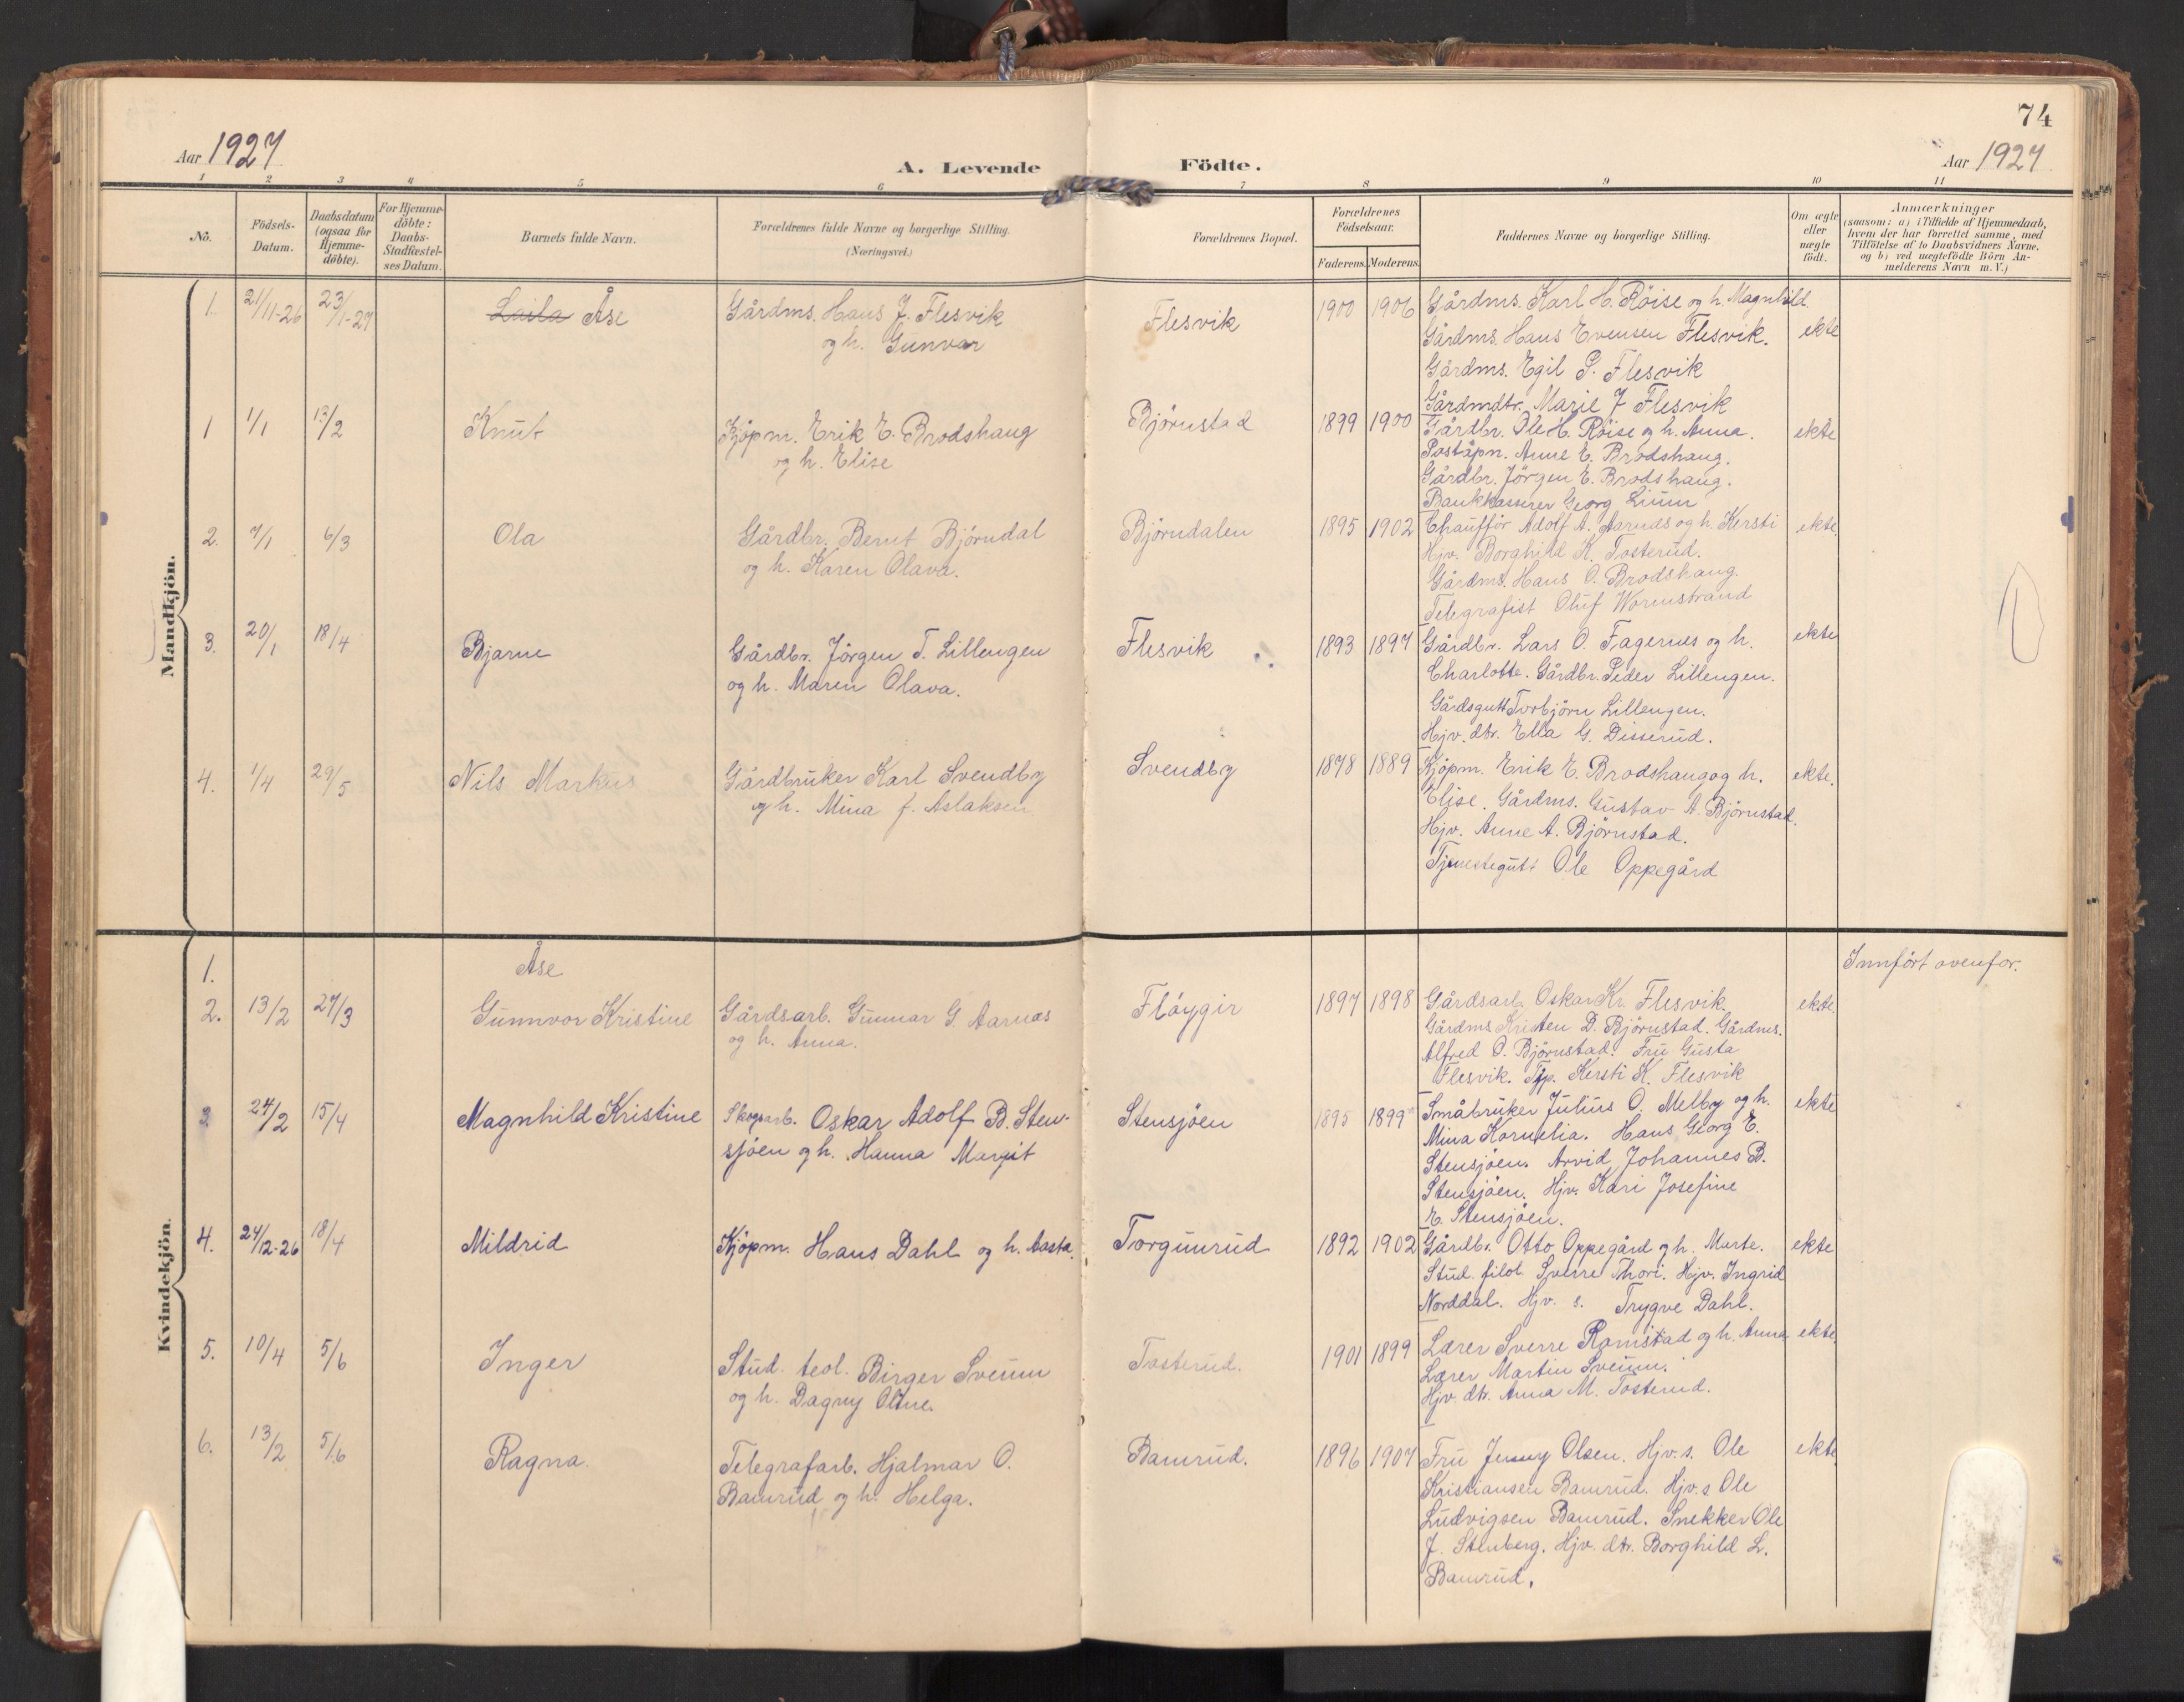 74
Aar 1927
A. Levende Födte.
Aar 1927
1 2 3 4 5 6 7 8 9 10 11
No.
Födsels-
Datum.
Daabsdatum
(ogsaa for
Hjemme-
döbte).
For Hjemme-
döbte:
Daabs-
Stadfæstel-
ses Datum.
Barnets fulde Navn.
Forældrenes fulde Navne og borgerlige Stilling.
(Næringsvei.)
Forældrenes Bopæl.
Forældrenes
Födselsaar.
Faderens. Moderens.
Faddernes Navne og borgerlige Stilling.
Om ægte
eller
uægte
födt.
Anmærkninger
(saasom: a) i Tilfælde af Hjemmedaab,
hvem der har forrettet samme, med
Tilföielse af to Daabsvidners Navne.
og b) ved uægtefödte Börn An-
melderens Navn m. V.)
Mandkjön.
1. 21/11-26 23/1-27 Laila Åse
Gårdms. Hans J. Flesvik
og h. Gunvor
Flesvik 1900 1906
Gårdms. Karl H. Röise og h. Magnhild.
Gårdms. Hans Evensen Flesvik.
Gårdms. Egil P. Flesvik
Gårdmdtr. Marie J Flesvik
ekte
1 1/1 13/2 Knut
Kjöpm. Erik E. Brodshaug
og h. Elise
Björnstad 1899 1900
Gårdbr. Ole H. Röise og h. Anna.
Poståpn. Anne E. Brodshaug.
Gårdbr. Jörgen E. Brodshaug.
Bankkasserer Georg Lium
ekte
2. 7/1 6/3 Ola
Gårdbr. Bernt Björndal
og h. Karen Olava.
Björndalen 1895 1902
Chaufför Adolf A. Aarnæs og h. Kersti
Hjv. Borghild K. Tosterud.
Gårdms. Hans O. Brodshaug.
Telegrafist Oluf Worenstrand
ekte.
3. 20/1 18/4 Bjarne
Gårdbr. Jörgen T. Lillengen
og h. Maren Olava.
Flesvik 1893 1897
Gårdbr. Lars O. Fagernes og h.
Charlotte. Gårdbr. Peder Lillengen.
Gårdsgutt Torbjörn Lillengen.
Hjv. dtr. Ella G. Disserud.
ekte
4. 1/4 29/5 Nils Markus
Gårdbruker Karl Svendby
og h. Mina f. Aslaksen
Svendby 1878 1889
Kjöpm. Erik E. Brodshaug og h.
Elise. Gårdms. Gustav A. Björnstad.
Hjv. Anne A. Björnstad.
Tjenestegutt Ole Oppegård
ekte.
Kvindekjön.
1. Åse
Innfört ovenfor.
2. 13/2 27/3 Gunnvor Kristine
Gårdsarb. Gunnar G. Aarnæs
og h. Anna.
Flöygir 1897 1898
Gårdsarb. Oskar Kr. Flesvik.
Gårdms. Kristen D. Björnstad. Gårdms.
Alfred O. Björnstad. Fru Gusta
Flesvik. Tjp. Kersti K. Flesvik
ekte.
3. 24/2 15/4 Magnhild Kristine
Skogsarb. Oskar Adolf B. Sten-
sjöen og h. Hanna Margit
Stensjöen 1895 1899
Småbruker Julius O. Melby og h.
Mina Kornelia. Hans Georg E.
Stensjöen. Arvid Johannes B.
Stensjöen. Hjv. Kari Josefine
E. Stensjöen.
ekte
4. 24/12-26 18/4 Mildrid
Kjöpm. Hans Dahl og h. Aasta.
Torgunrud 1892 1902
Gårdbr. Otto Oppegård og h. Marte.
Stud. filol. Sverre Thori. Hjv. Ingrid
Norddal. Hjv. s. Trygve Dahl.
ekte
5. 10/4 5/6 Inger
Stud. teol. Birger Sveum
og h. Dagny Oline.
Tosterud. 1901 1899
Lærer Sverre Ramstad og h. Anna
Lærer Martin Sveum.
Hjv. dtr. Anna M. Tosterud.
ekte.
6. 13/2 5/6 Ragna.
Telegrafarb. Hjalmar O.
Bamrud og h. Helga.
Bamrud. 1896 1907
Fru Jenny Olsen. Hjv. s. Ole
Kristiansen Bamrud. Hjv. s Ole
Ludvigsen Bamrud. Snekker Ole
J. Stenberg. Hjv. dtr. Borghild L.
Bamrud.
ekte.